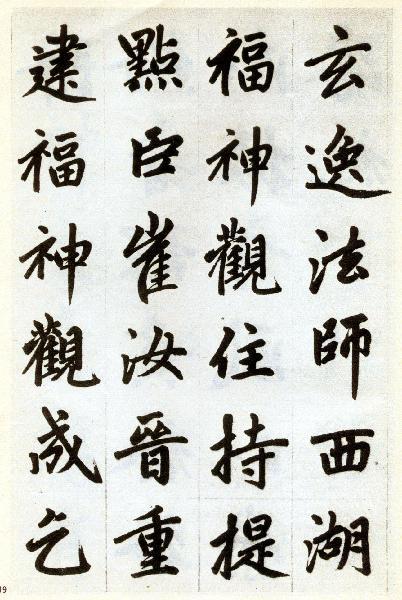 玄逸法師西湖
福神觀住持提
點臣崔汝晉重
建福神觀成乞
19